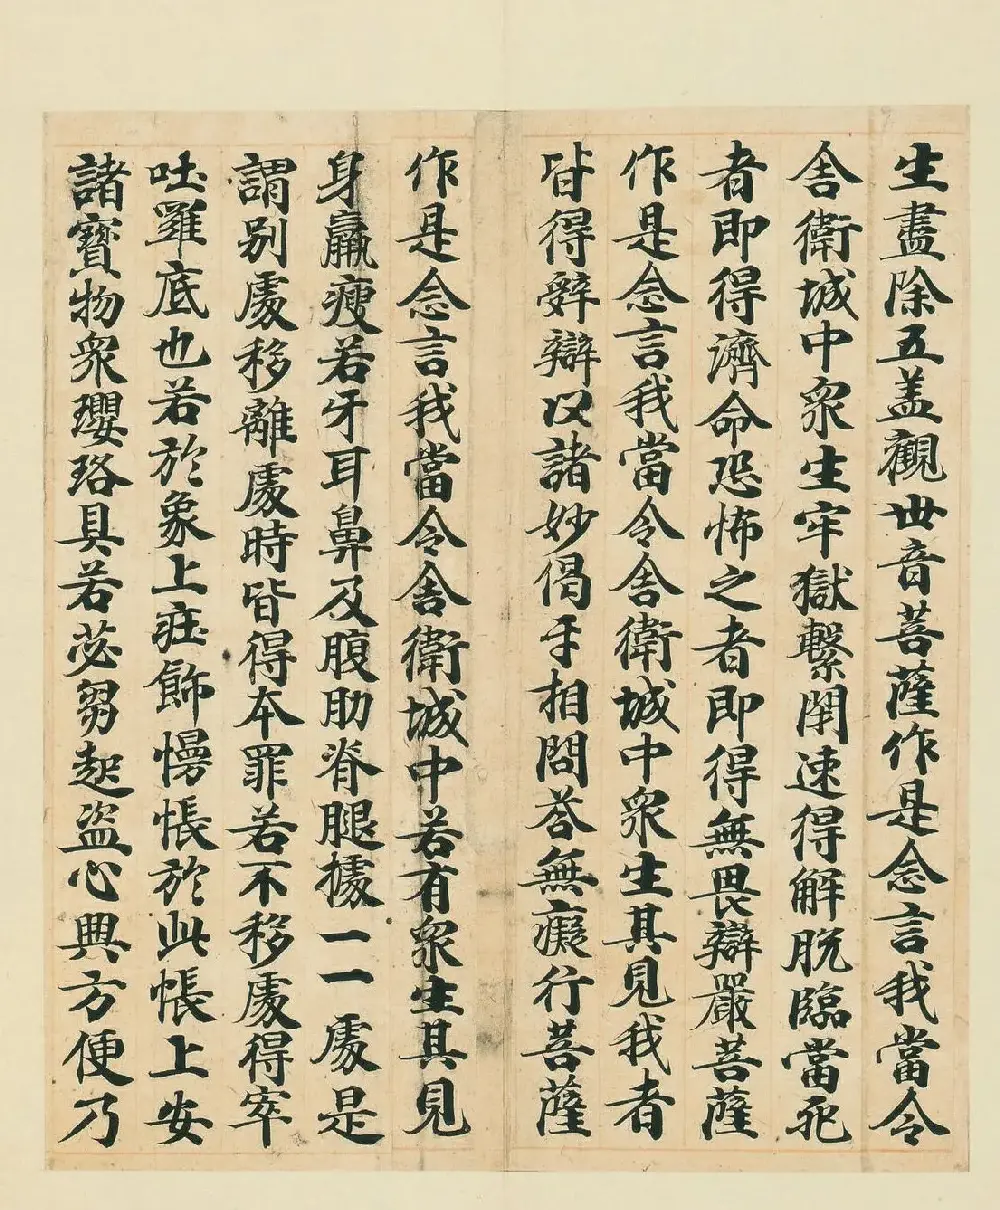 生盡除五盖觀世音菩薩作是念言我當令
舍衛城中衆生牢獄繫閇速得解脫臨當死
者即得濟命恐怖之者即得無畏辯嚴菩薩
作是念言我當令舍衛城中衆生其見我者
皆得辤辯以諸妙偈手相問荅無癡行菩薩
作是念言我當令舍衛城中若有衆生其見
身羸瘦若牙耳鼻及腹肋脊腿據一一處是
謂別處移離處時皆得本罪若不移處得窣
吐羅底也若於象上莊飾幔帳於此帳上安
諸寶物衆瓔珞具若苾芻起盗心興方便乃